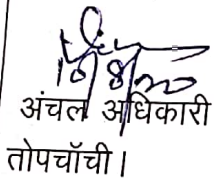 अंचल अधिकारी
तोपचाँची।